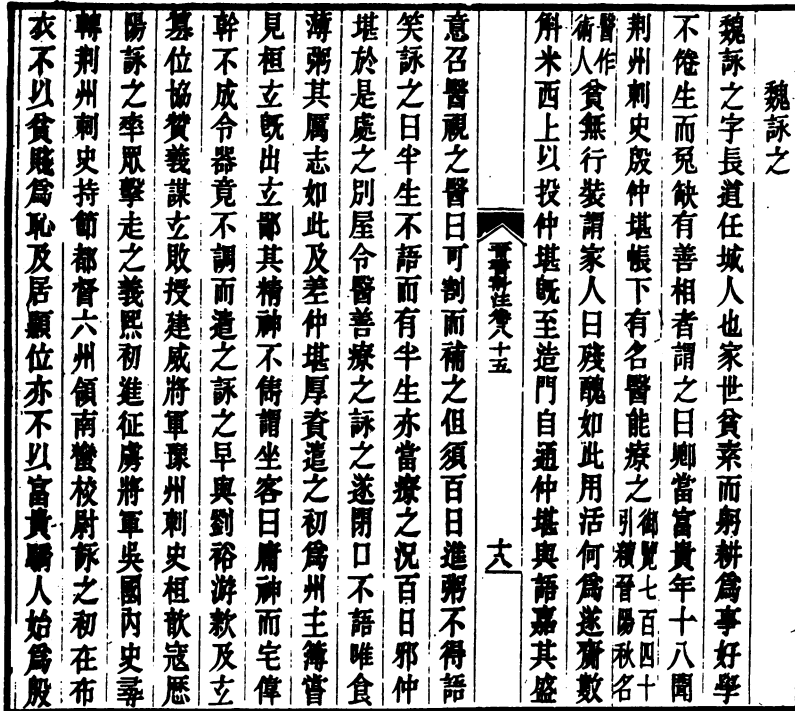 魏詠之
魏詠之字長道任城人也家世貧素而躬耕爲事好學
不倦生而兔缺有善相者謂之曰卿當富貴年十八聞
荆州刺史殷仲堪帳下有名醫能療之御覽七百四十引續晉陽秋名
醫作術人貧無行裝謂家人曰殘醜如此用活何爲遂齎數
斛米西上以投仲堪旣至造門自通仲堪與語嘉其盛
晉書斠注卷八十五
十八
意召醫視之醫曰可割而補之但須百日進粥不得語
笑詠之曰半生不語而有半生亦當療之況百日邪仲
堪於是處之別屋令醫善療之詠之遂閉口不語唯食
薄粥其厲志如此及差仲堪厚資遣之初爲州主簿嘗
見桓玄旣出玄鄙其精神不雋謂坐客曰庸神而宅偉
幹不成令器竟不調而遣之詠之早與劉裕游款及玄
篡位協贊義謀玄敗授建威將軍豫州刺史桓歆寇歷
陽詠之率眾擊走之義熙初進征虜將軍吳國內史尋
轉荆州刺史持節都督六州領南蠻校尉詠之初在布
衣不以貧賤爲恥及居顯位亦不以富貴驕人始爲殷